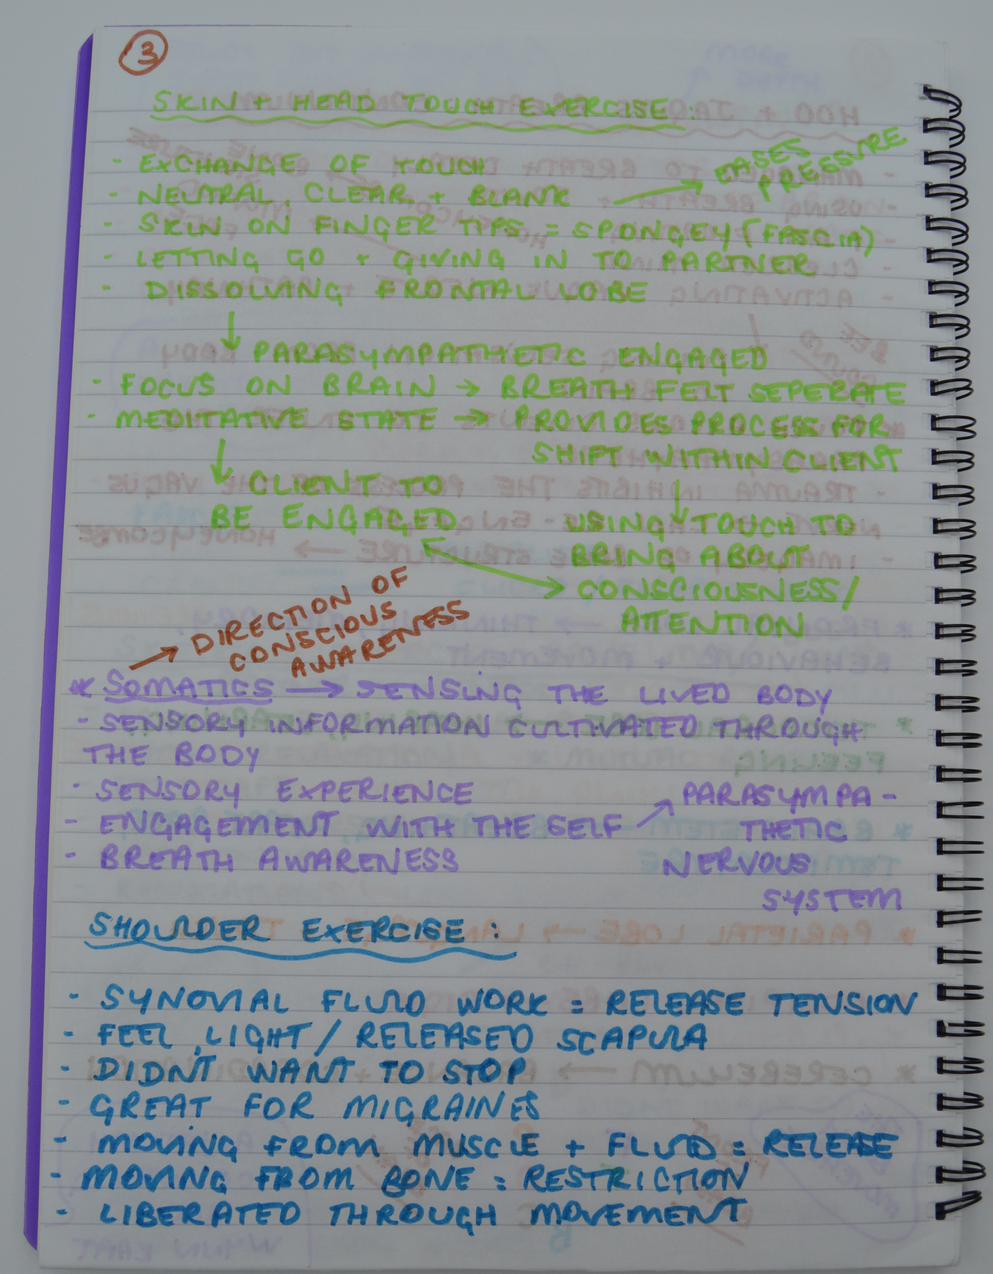 3
SKIN + HEAD TOUCH EXERCISE:
- EXCHANGE OF TOUCH
- NEUTRAL, CLEAR + BLANK → EASES PRESSURE
- SKIN ON FINGER TIPS = SPONGEY (FASCIA)
- LETTING GO + GIVING IN TO PARTNER
- DISSOLVING FRONTAL LOBE
↓ PARASYMPATHETIC ENGAGED
- FOCUS ON BRAIN → BREATH FELT SEPERATE
- MEDITATIVE STATE → PROVIDES PROCESS FOR
SHIFT WITHIN CLIENT
↓ CLIENT TO
BE ENGAGED
↓ USING TOUCH TO
BRING ABOUT
CONSCIOUSNESS/
ATTENTION
→ DIRECTION OF
CONSCIOUS
AWARENESS
* SOMATICS → SENSING THE LIVED BODY
- SENSORY INFORMATION CULTIVATED THROUGH
THE BODY
- SENSORY EXPERIENCE
- ENGAGEMENT WITH THE SELF ↗ PARASYMPA-
THETIC
NERVOUS
SYSTEM
- BREATH AWARENESS
SHOULDER EXERCISE:
- SYNOVIAL FLUID WORK = RELEASE TENSION
- FEEL LIGHT / RELEASED SCAPULA
- DIDNT WANT TO STOP
- GREAT FOR MIGRAINES
- MOVING FROM MUSCLE + FLUID = RELEASE
- MOVING FROM BONE = RESTRICTION
- LIBERATED THROUGH MOVEMENT